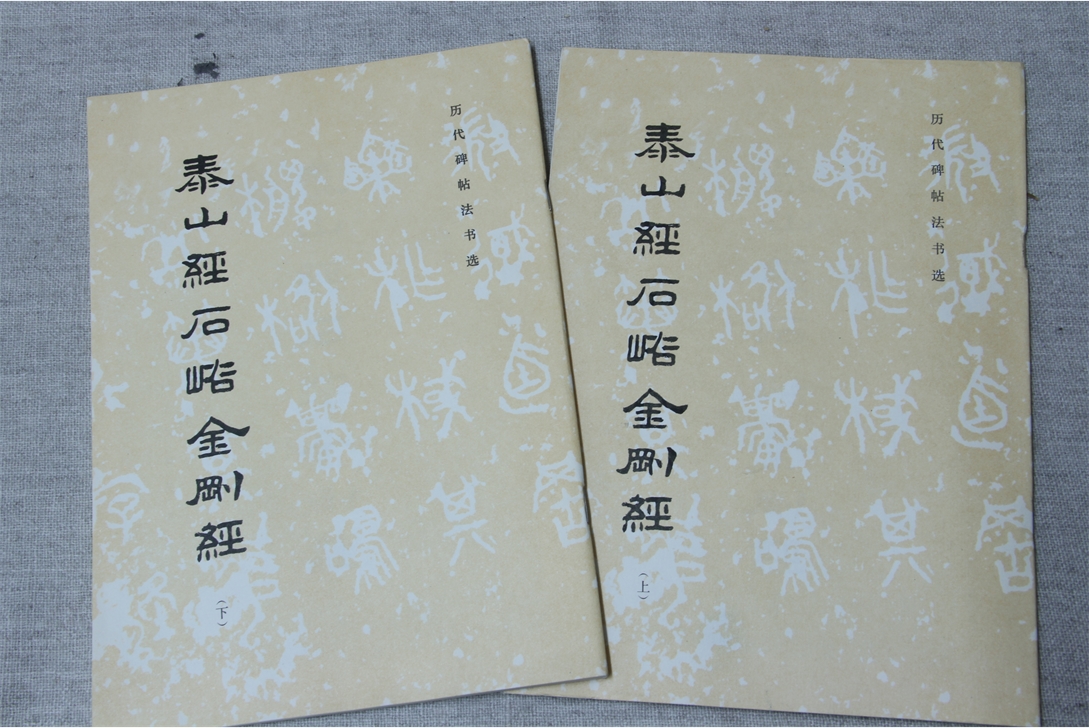 历代碑帖法书选
泰山經石峪金剛經
（下）
历代碑帖法书选
泰山經石峪金剛經
（上）